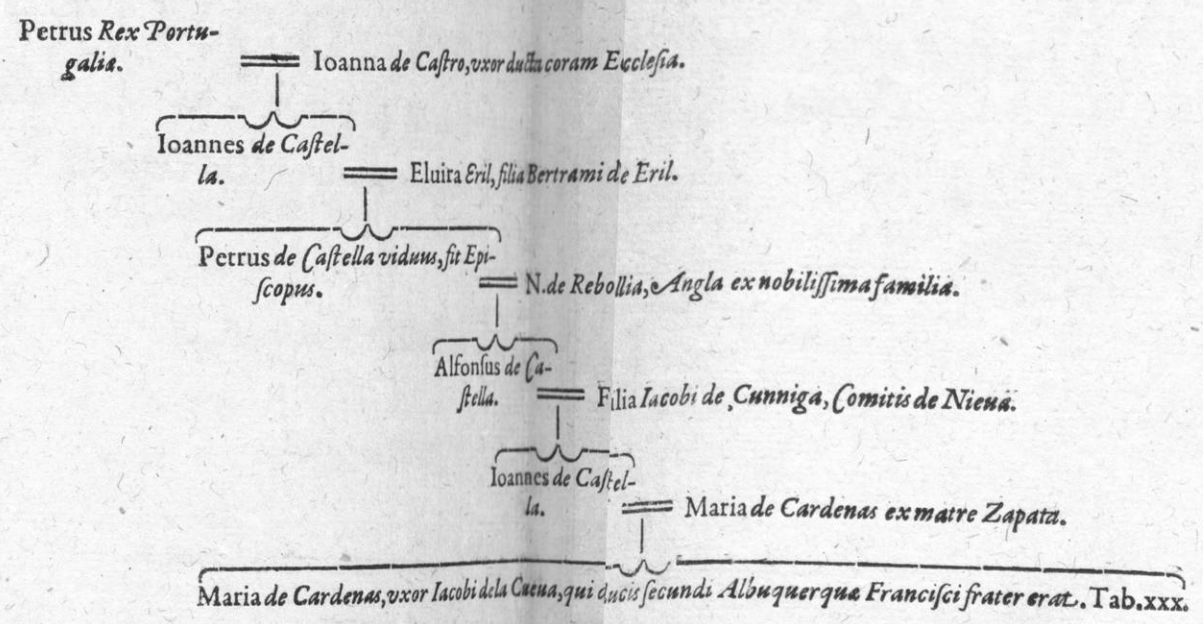 Petrus Rex Portu-
galiæ.
Ioanna de Caſtro, vxor ducta coram Eccleſia.
Ioannes de Caſtel-
la.
Eluira Eril, filia Bertrami de Eril.
Petrus de Caſtella viduus, fit Epi-
ſcopus.
N. de Rebollia, Angla ex nobiliſſima familia.
Alfonſus de Ca-
ſtella.
Filia Iacobi de Cunniga, Comitis de Nieua.
Ioannes de Caſtel-
la.
Maria de Cardenas ex matre Zapata.
Maria de Cardenas, vxor Iacobi dela Cueua, qui ducis ſecundi Albuquerquæ Franciſci frater erat. Tab. xxx.